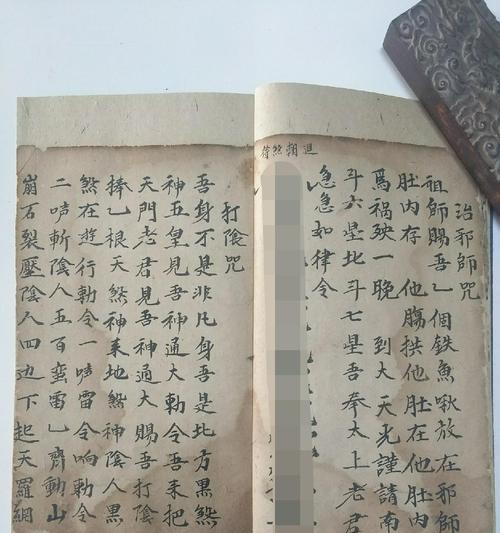 治邪师咒
祖師賜吾乚個鉄魚鍬放在邪師
肚内存 他腸拱他肚在他肚内
爲禍殃一晚 到大天光謹請南
斗六星北斗七星吾奉太上老君
急急如律令
打陰咒
吾身不是非凡身吾是北方黑煞
神五皇見吾神通大勅令吾来把
天門老君見吾神通大賜吾打陰
捧乚根天煞神来地煞神陰人黑
煞在遊行勅令一唪雷令响勅令
二唪斬陰人五百蛮雷乚齊動山
崩石裂壓陰人四边下起天羅網